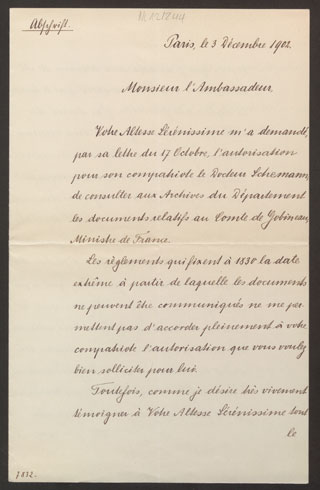 Abschrift.
Paris, le 3 Décembre 1902.
Monsieur l'Ambassadeur,
Votre Altesse Sérénissime m'a demandé,
par sa lettre du 17 Octobre, l'autorisation
pour son compatriote le Docteur Schemann,
de consulter aux Archives du Département
les documents relatifs au Comte de Gobineau,
Ministre de France.
Les règlements qui fixent à 1830 la date
extrême à partir de laquelle les documents
ne peuvent être communiqués ne me per-
mettent pas d'accorder pleinement à votre
compatriote l'autorisation que vous voulez
bien solliciter pour lui.
Toutefois, comme je désire très vivement
témoigner à Votre Altesse Sérénissime tout
le
7832.